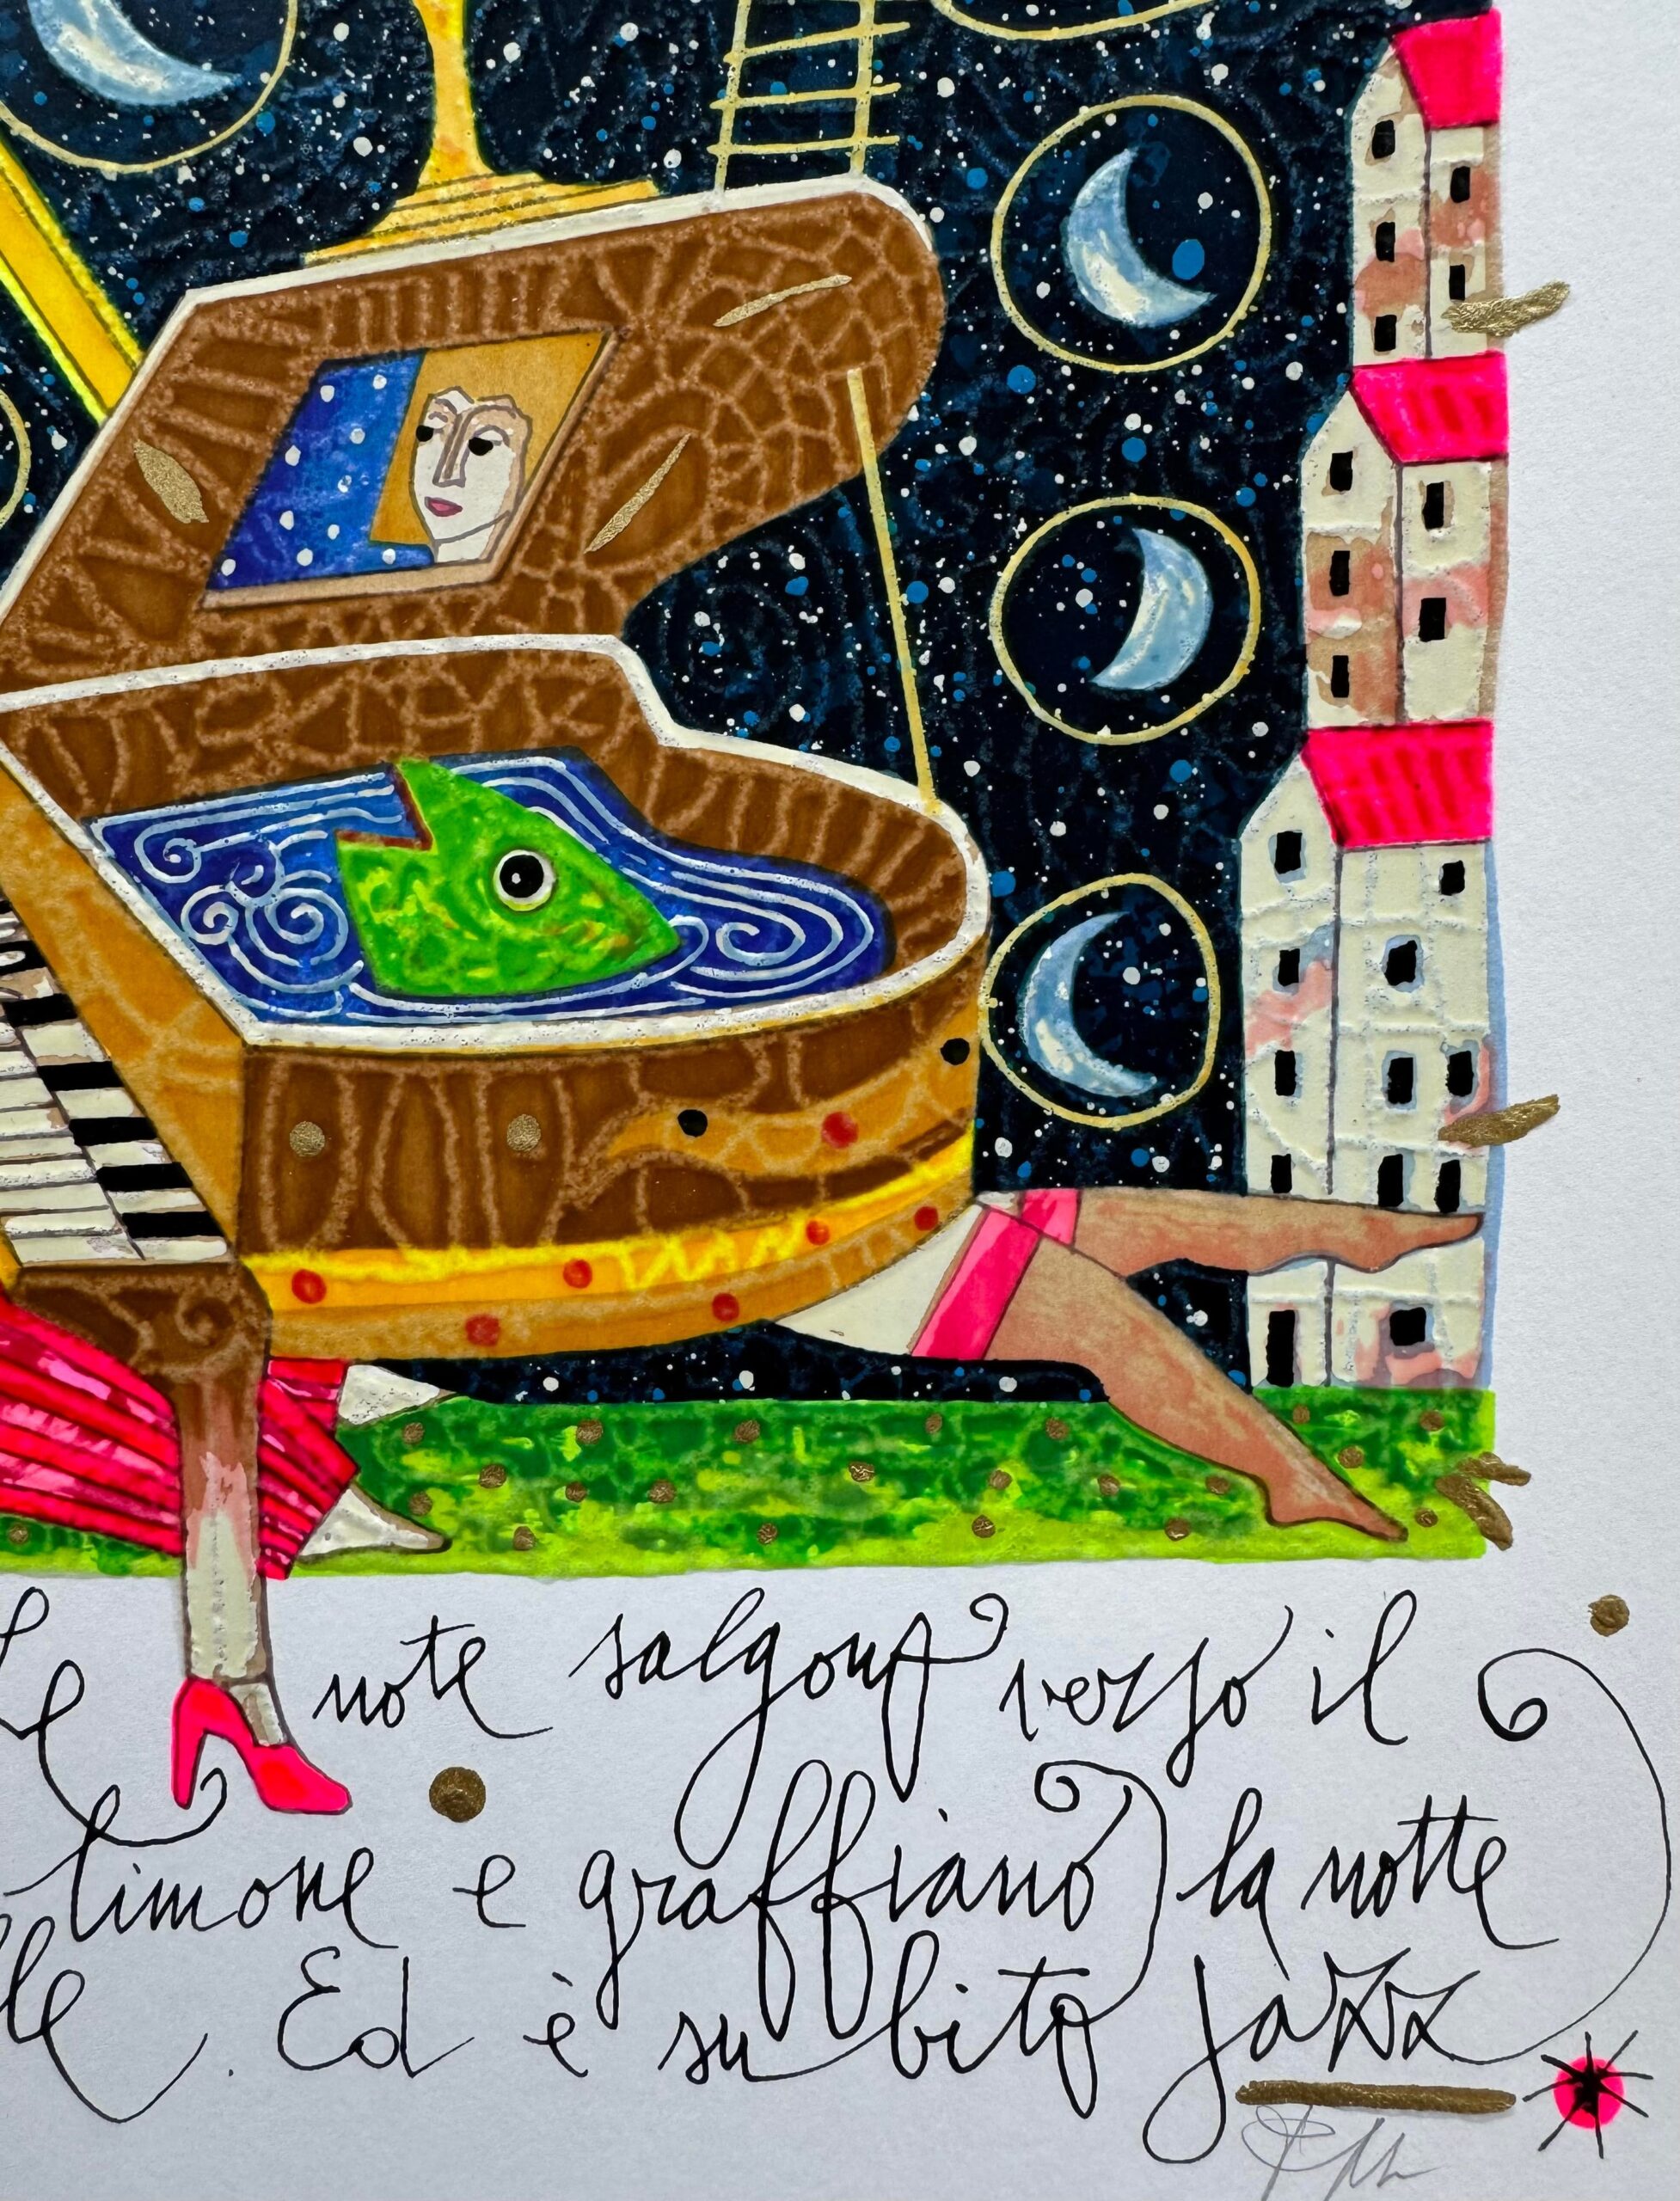 Le note salgono verso il
limone e graffiano la notte
. Ed è subito jazz